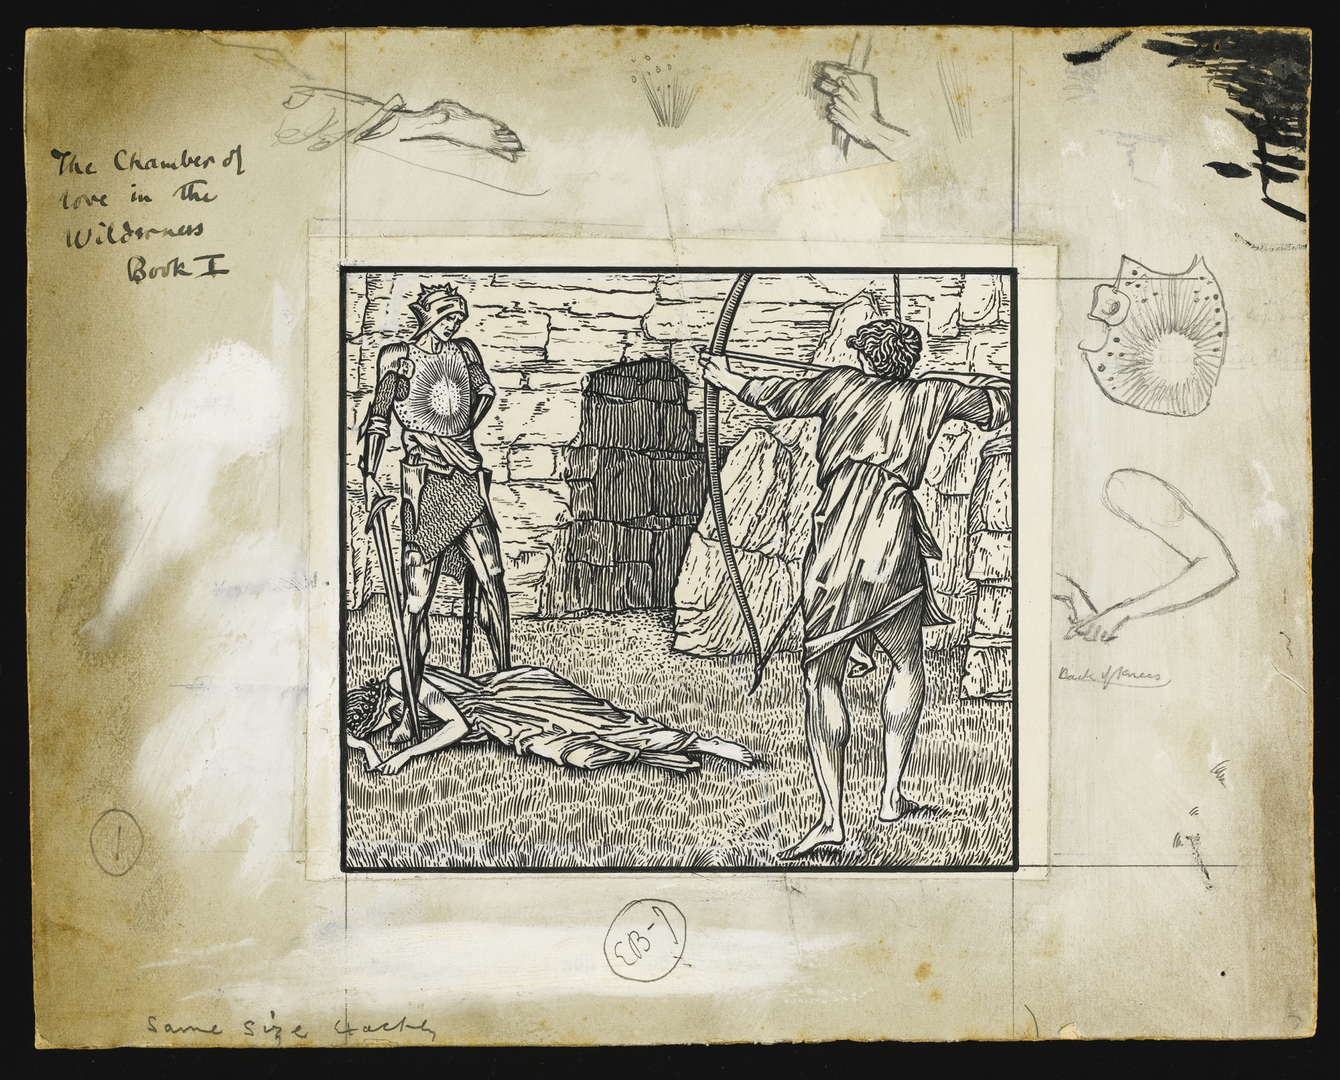 The Chamber of
love in the
Wilderness
Book I
Back of Knees
1
EB-1
Same size exactly